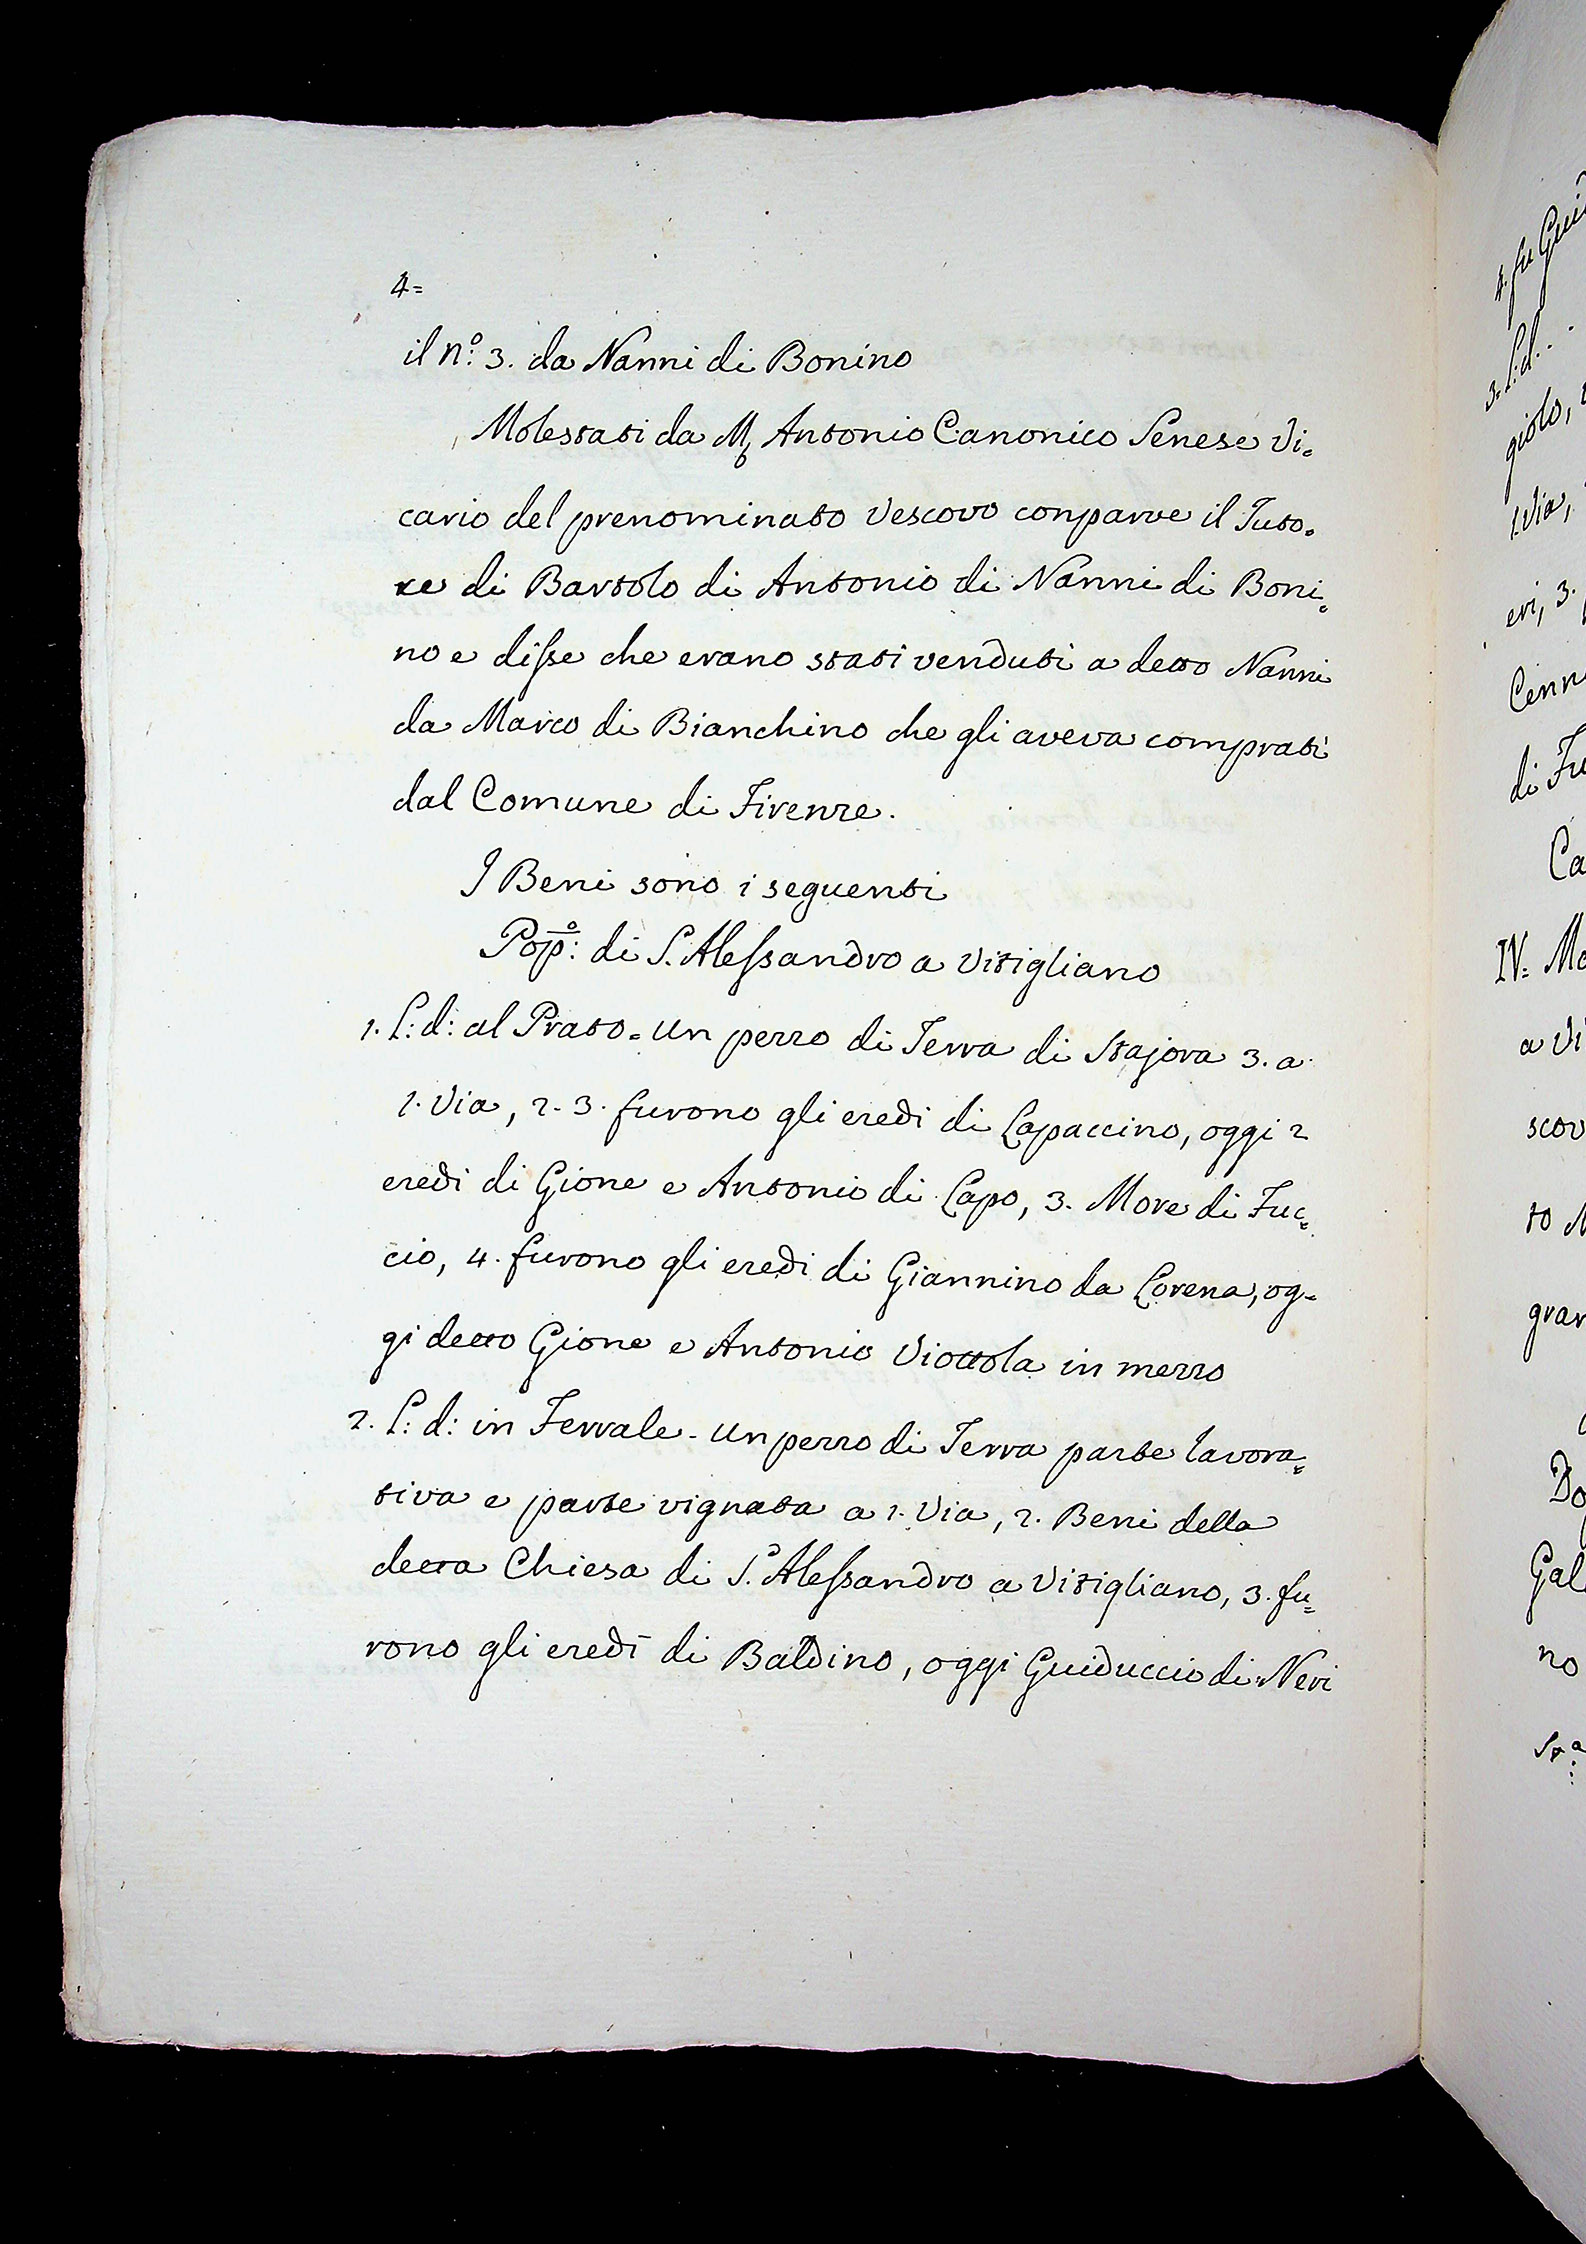 4=
il n.º 3. da Nanni di Bonino
Molestati da Mſ Antonio Canonico Senese Vi=
cario del prenominato Vescovo conparve il Tuto=
re di Bartolo di Antonio di Nanni di Boni=
no e diſse che erano stati venduti a detto Nanni
da Marco di Bianchino che gli aveva comprati
dal Comune di Firenze.
I Beni sono i seguenti
Pop̄º: di S. Aleſsandro a Vitigliano
1. L: d: al Prato = Un pezzo di Terra di Stajora 3. a
1. Via, 2. 3. furono gli eredi di Lapaccino, oggi 2
eredi di Gione e Antonio di Lapo, 3. More di Fuc=
cio, 4. furono gli eredi di Giannino da Lorena, og=
gi detto Gione e Antonio Viottola in mezzo
2. L: d: in Ferrale - Un pezzo di Terra parte lavora=
tiva e parte vignata a 1. Via, 2. Beni della
detta Chiesa di S. Aleſsandro a Vitigliano, 3. fu=
rono gli eredi di Baldino, oggi Guiduccio di Neri
4. fu
3. L: d:
giolo,
1. Via,
eri, 3.
di
IV= 
a Vi
scov
to
gran
no